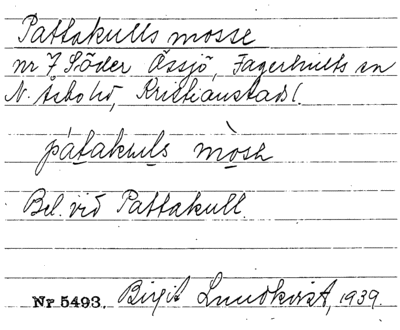 Pattakulls mosse
nr 7 Söder Össjö, Fagerhults sn
N. Åsbo hd, Kristianstads l.
pátakuls mòsə
Bel. vid Pattakull
Nr 5493. Birgit Lundkvist, 1939.